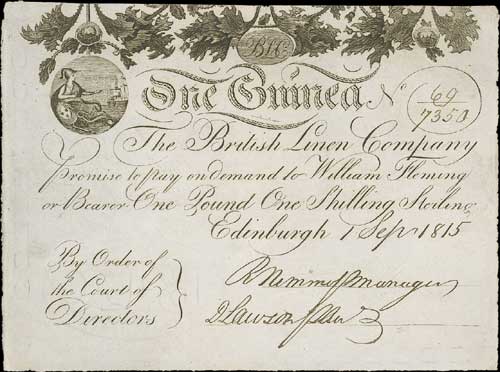 BLCo
One Guinea No 69/7350
The British Linen Company
Promise to pay on demand to William Fleming
or Bearer One Pound One Shilling Sterling
Edinburgh 1 Sep 1815
By Order of
the Court of
Directors
Manager
D Lawson